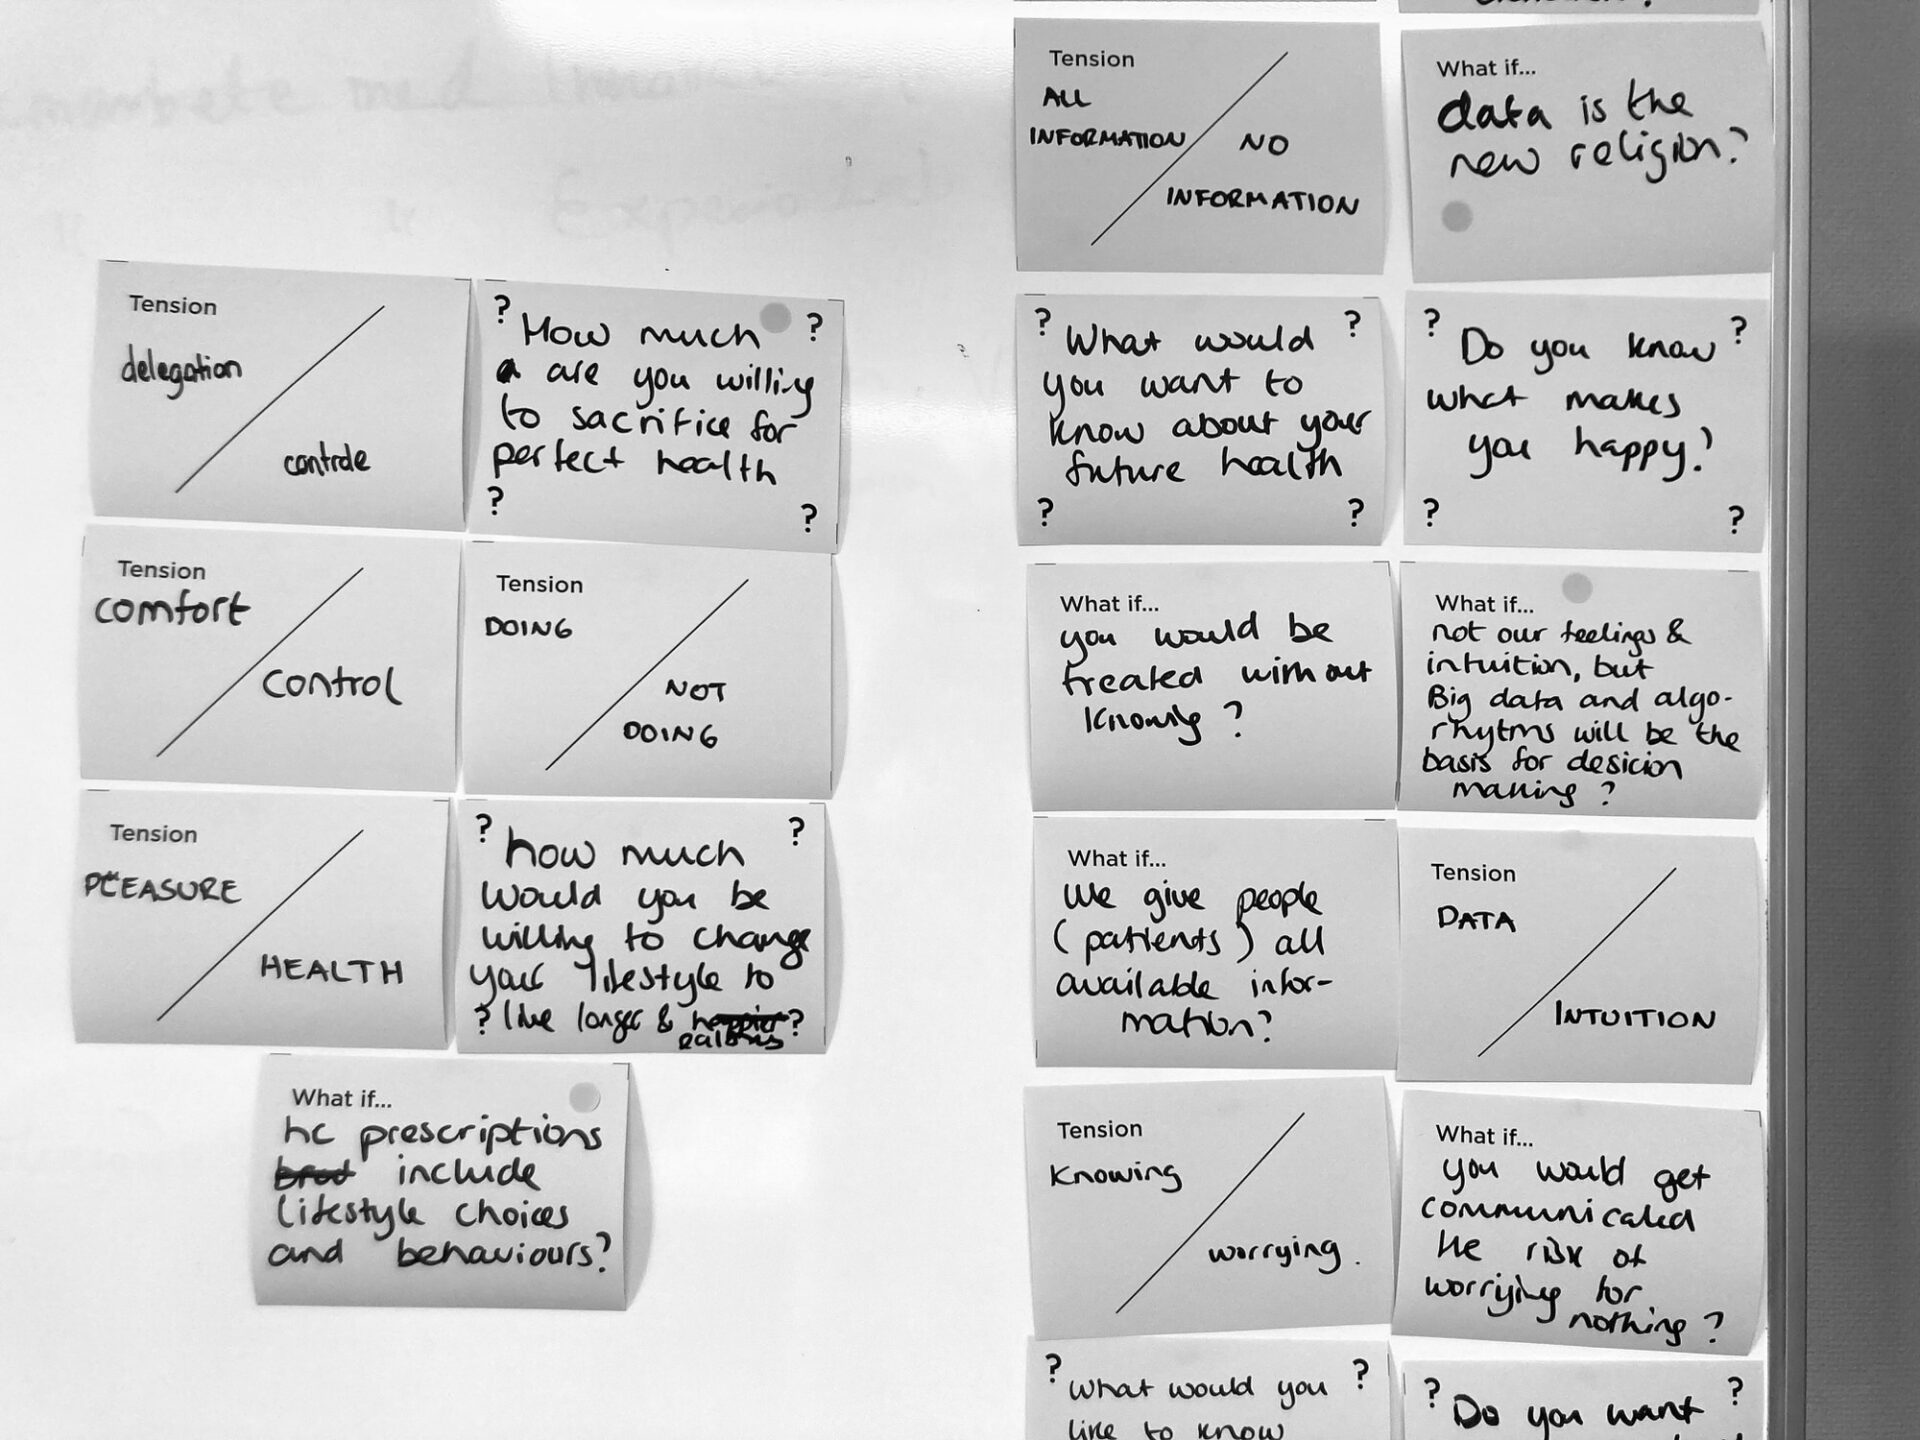 Tension
delegation
controle
? How much ?
are you willing
to sacrifice for
perfect health
? ?
Tension
comfort
control
Tension
DOING
NOT
DOING
Tension
PLEASURE
HEALTH
? how much ?
would you be
willing to change
your lifestyle to
? live longer & ?
What if...
hc prescriptions
include
lifestyle choices
and behaviours?
Tension
ALL
INFORMATION
NO
INFORMATION
What if...
data is the
new religion?
? What would ?
you want to
know about your
future health
? ?
? Do you know ?
what makes
you happy?
? ?
What if...
you would be
treated without
knowing ?
What if...
not our feelings &
intuition, but
Big data and algo-
rhytms will be the
basis for desicion
making ?
What if...
We give people
(patients) all
available infor-
mation?
Tension
DATA
INTUITION
Tension
Knowing
worrying.
What if...
you would get
communicated
the risk of
worrying for
nothing ?
? What would you ?
like to know
? Do you want ?